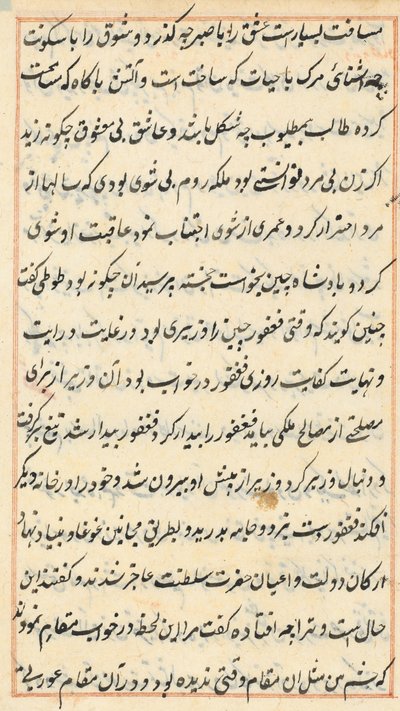 مسافت بسیارست عشق را با صبر چه گذر و شوق را با سکونت
چه آشنائی مرک با حیات که ساخت است و آتش با کاه که ساخت
کرده طالب بی مطلوب چه شکل باشد و عاشق بی معشوق چکونه زید
اکر زن بی مرد توانستی بود ملکه روم بی شوی بودی که سالها از
مرد احتراز کرد و عمری از شوی اجتناب نمود عاقبت او شوی
کرد و بادشاه چین بخواست خجسته پرسید آن چکونه بود طوطی کفت
چنین کویند که وقتی فغفور چین را وزیری بود در غایت درایت
و نهایت کفایت روزی فغفور در خواب بود آن وزیر از برای
مصلحتی از مصالح ملکی بیامد فغفور را بیدار کرد فغفور بیدار شد تیغ برکرفت
و دنبال وزیر کرد وزیر از پیش او بیرون شد و خود را در خانه دیکر
افکند فغفور دست بزد و جامه بدرید و بطریق مجانین غوغا و بنیاد نهاد
ارکان دولت و اعیان حضرت سلطنت عاجز شدند و کفتند این
حال است و ترا چه افتاده کفت مرا این لحظه در خواب مقام نمودند
که چشم من مثل آن مقام وقتی ندیده بود و در آن مقام عورتی